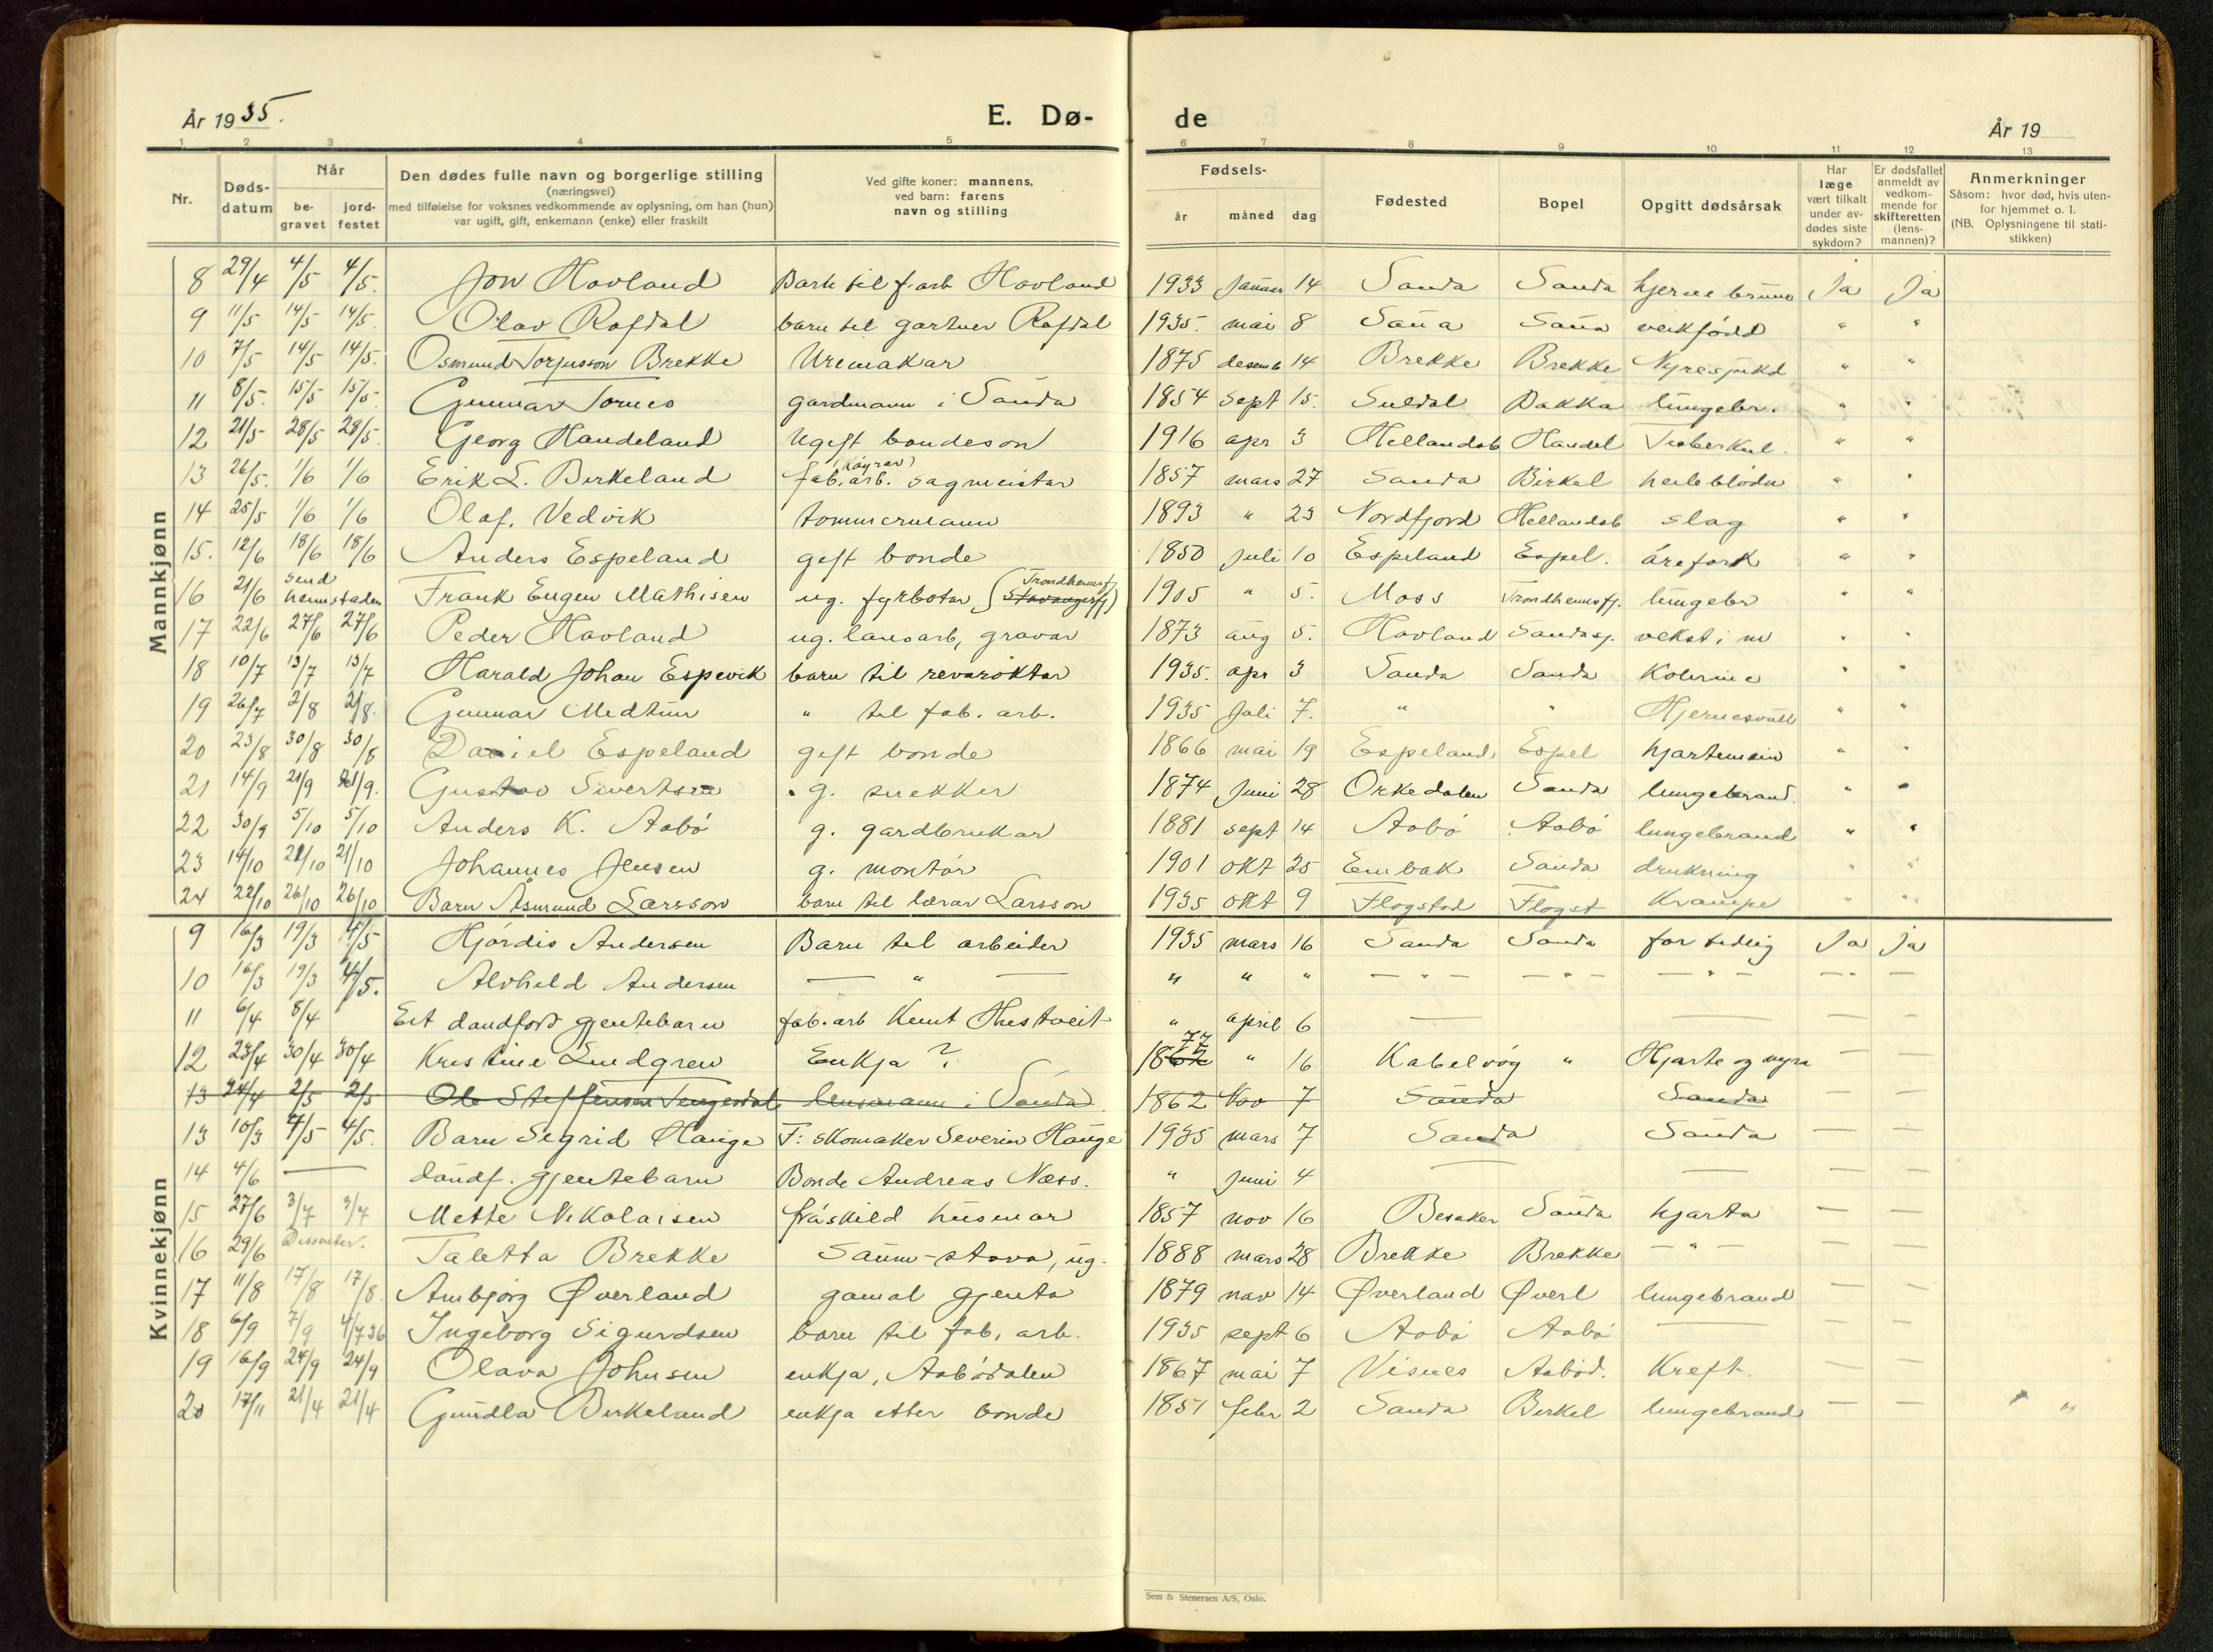 År 1935.
E. Dø-
de
År 19
1 2 3 4 5 6 7 8 9 10 11 12 13
Nr. Døds-datum Når be-gravet jord-festet Den dødes fulle navn og borgerlige stilling (næringsvei) med tilføielse for voksnes vedkommende av oplysning, om han (hun) var ugift, gift, enkemann (enke) eller fraskilt Ved gifte koner: mannens, ved barn: farens navn og stilling Fødsels- år måned dag Fødested Bopel Opgitt dødsårsak Har læge vært tilkalt under av-dødes siste sykdom? Er dødsfallet anmeldt av vedkom-mende for skifteretten (lens-mannen)? Anmerkninger Såsom: hvor død, hvis uten-for hjemmet o. l. (NB. Oplysningene til stati-stikken)
Mannkjønn
8 29/4 4/5 4/5. Jon Havland Barn til f.arb Havland 1933 Januar 14 Sauda Sauda Ja Ja
9 11/5 14/5 14/5. Olav Rafdal barn til gartner Rafdal 1935. mai 8 Sauda Sauda veikfödd " "
10 7/5 14/5 14/5. Osmund Torjusson Brekke Uremakar 1875 desemb 14 Brekke Brekke Nyresjukd " "
11 8/5. 15/5 15/5. Gunnar Tornes gardmann i Sauda 1854 sept 15. Suldal Bakka lungebr. " "
12 21/5 28/5 28/5. Georg Handeland Ugift bondeson 1916 apr 3 Hellandsb Handel Tuberkul. " "
13 26/5. 1/6 1/6 Erik L. Birkeland fab. arb. (Köyrar) sagmeistar 1857 mars 27 Sauda Birkel heileblödn " "
14 25/5 1/6 1/6 Olaf. Vedvik tömmermann 1893 " 23 Nordfjord Hellandsb slag " "
15. 12/6 18/6 18/6 Anders Espeland gift bonde 1850 juli 10 Espeland Espel. årefork " "
16 21/6 send heimstaden Frank Eugen Mathisen ug. fyrbötar (Trondheimsfj. Stavangerfj) 1905 " 5. Moss Trondheimsfj. lungebr " "
17 22/6 27/6 27/6 Peder Havland ug. lausarb, gravar 1873 aug 5. Havland Saudasj. vekst i m " "
18 10/7 13/7 13/7 Harald Johan Espevik barn til revaröktar 1935. apr 3 Sauda Sauda Kolerine " "
19 26/7 2/8 2/8. Gunnar Medtun " til fab. arb. 1935 Juli 7. " " " "
20 23/8 30/8 30/8 Daniel Espeland gift bonde 1866 mai 19 Espeland Espel hjartemein " "
21 14/9 21/9 21/9. Gustav Sivertsen g. snekker 1874 Juni 28 Orkedalen Sauda lungebrand. " "
22 30/9 5/10 5/10 Anders K. Aabö g. gardbrukar 1881 sept 14 Aabö Aabö lungebrand " "
23 14/10 21/10 21/10 Johannes Jensen g. montör 1901 okt 25 Embak Sauda drukning " "
24 22/10 26/10 26/10 Barn Åsmund Larsson barn til lærar Larsson 1935 okt 9 Flogstad Flogst Krampe " "
Kvinnekjønn
9 16/3 19/3 4/5 Hjördis Andersen Barn til arbeider 1935 mars 16 Sauda Sauda for tidlig Ja Ja
10 16/3 19/3 4/5. Alvhild Andersen — " — " " " — " — — " — — " — — " — —
11 6/4 8/4 Eit daudfödt gjentebarn fab. arb Knut Hustveit " april 6 — — — —
12 23/4 30/4 30/4 Kristine Lindgren Enkja ? 1862 77 " 16 Kabelvög " Hjarte og nyra — —
13 24/4 2/5 2/5 Ole Steffensen Tengesdal lensmann i Sauda 1862 Nov 7 Sauda Sauda — —
13 10/3 4/5 4/5. Barn Sigrid Hauge F: skomaker Severin Hauge 1935 mars 7 Sauda Sauda — —
14 4/6 — daudf. gjentebarn Bonde Andreas Næss. " Juni 4 — — — —
15 27/6 3/7 3/7 Mette Nikolaisen fråskild husmor 1857 nov 16 Besaker Sauda hjarta — —
16 29/6 Desember. Taletta Brekke Saum-stova, ug. 1888 mars 28 Brekke Brekke — " — — —
17 11/8 17/8 17/8. Ambjörg Øverland gamal gjenta 1879 nov 14 Øverland Øverl lungebrand — —
18 6/9 7/9 4/7 36 Ingeborg Sigurdsen barn til fab. arb. 1935 sept 6 Aabö Aabö — — —
19 16/9 24/9 24/9 Olava Johnsen enkja, Aabödalen 1867 mai 7 Visnes Aaböd. Kreft. — —
20 17/11 21/4 21/4 Gundla Birkeland enkja etter bonde 1851 febr 2 Sauda Birkel lungebrand — — "
Sem & Stenersen A/S, Oslo.